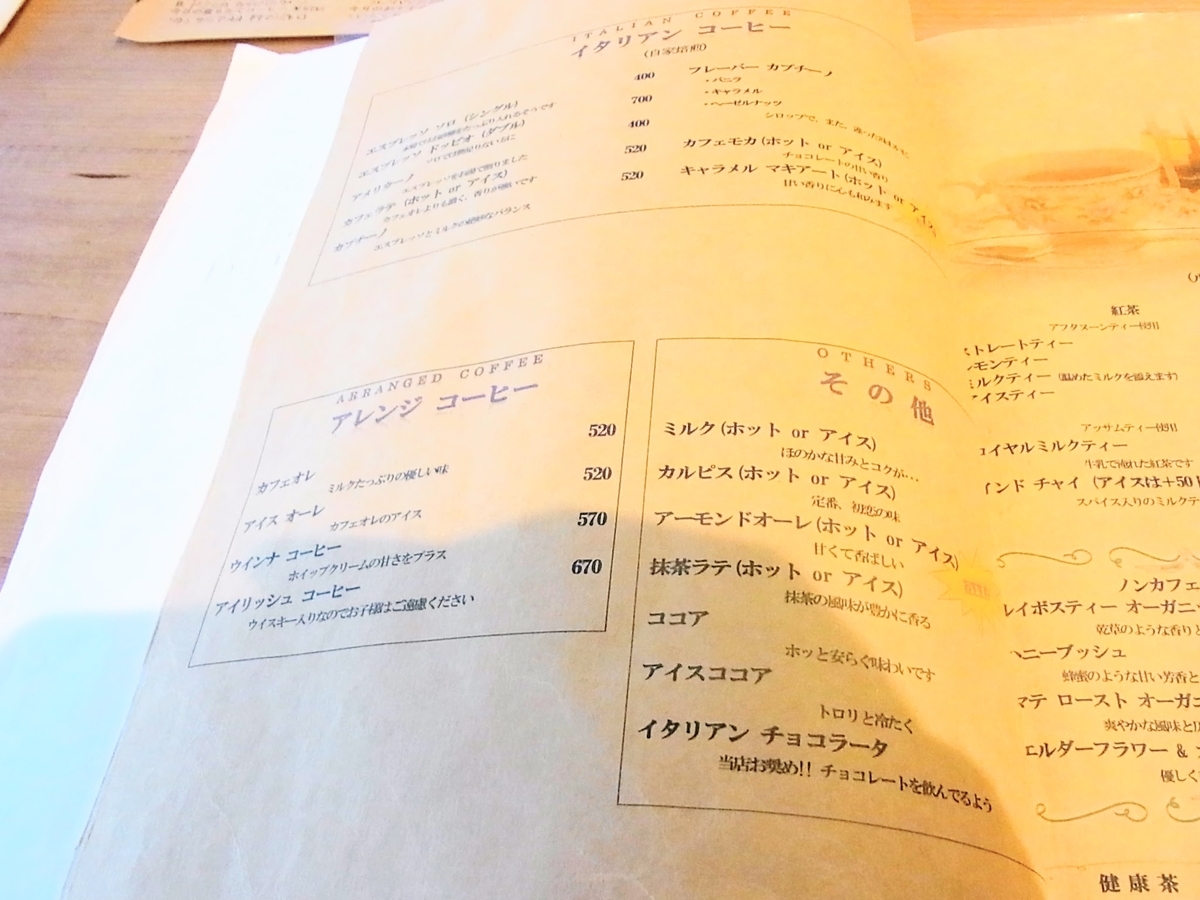 ITALIAN COFFEE
イタリアン コーヒー
(自家焙煎)
エスプレッソ ソロ (シングル) 400
エスプレッソ ドッピオ (ダブル) 700
ソロでは物足りない方に
アメリカーノ 400
エスプレッソをお湯で割りました
カフェラテ (ホット or アイス) 520
カフェオレよりも濃く、香りが強いです
カプチーノ 520
エスプレッソとミルクの絶妙なバランス
フレーバー カプチーノ
・バニラ
・キャラメル
・ヘーゼルナッツ
シロップで、また
カフェモカ (ホット or アイス)
チョコレートの甘い香り
キャラメル マキアート (ホット or アイス)
甘い香りに心も和みます
ARRANGED COFFEE
アレンジ コーヒー
カフェオレ 520
ミルクたっぷりの優しい味
アイス オーレ 520
カフェオレのアイス
ウインナ コーヒー 570
ホイップクリームの甘さをプラス
アイリッシュ コーヒー 670
ウイスキー入りなのでお子様はご遠慮ください
OTHERS
その他
ミルク (ホット or アイス)
ほのかな甘みとコクが…
カルピス (ホット or アイス)
定番、初恋の味
アーモンドオーレ (ホット or アイス)
甘くて香ばしい
抹茶ラテ (ホット or アイス)
抹茶の風味が豊かに香る
ココア
ホッと安らぐ味わいです
アイスココア
トロリと冷たく
イタリアン チョコラータ
当店お奨め!! チョコレートを飲んでるよう
紅茶
アフタヌーンティー使用
トレートティー
モンティー
ミルクティー (温めたミルクを添えます)
アイスティー
アッサムティー使用
イヤルミルクティー
牛乳で淹れた紅茶です
インド チャイ (アイスは+50
スパイス入りのミルクテ
ノンカフェ
レイボスティー オーガニッ
乾草のような香りと
ハニーブッシュ
蜂蜜のような甘い芳香と
マテ ロースト オーガニ
爽やかな風味と
エルダーフラワー &
優しく
健康茶